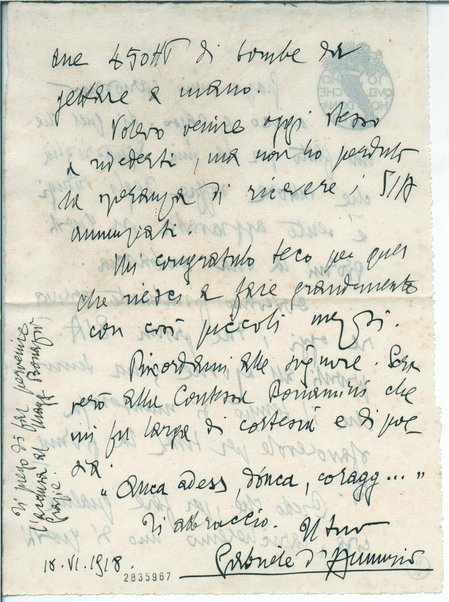 che 450 di bombe da
gettare a mano.
Volevo venire oggi stesso
a vederti, ma non ho perduto
la speranza di ricevere, SIA
annunziati.
Mi congratulo teco per quel
che riesci a fare grandemente
con così piccoli mezzi.
Ricordami alle signore.
alla Contessa Bonamini che
mi fu larga di cortesia e di poe
sia.
"Anca adess, dónca, coragg..."
Ti abbraccio. Il tuo
Gabriele d'Annunzio
18.VI.1918.
2835967
Ti prego di far pervenire
l'acclusa al Magg. Bonazzi
grazie
IO HO
QUEL CHE
HO DONATO